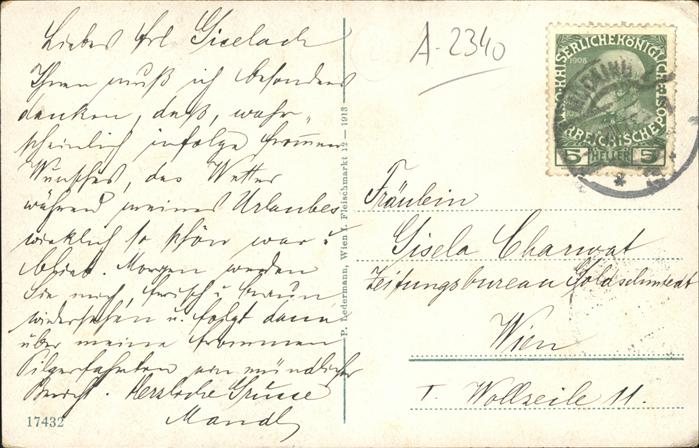 Liebes Frl Giselach
Ihnen muß ich besonders
danken, daß, wahr-
scheinlich infolge frommen
Wunsches, das Wetter
während meines Urlaubes
wirklich so schön war u
blieb. Morgen werden
Sie mich, frisch u braun
wiedersehen u. folgt dann
über meine frommen
Pilgerfahrten ein mündlicher
Bericht. Herzliche Grüsse
Mandl
17432
P. Ledermann, Wien I. Fleischmarkt 12 — 1913
A-2340
KAISERLICHE KÖNIGLICHE
1908
ÖSTERREICHISCHE POST
5 HELLER 5
Fräulein
Gisela Charwat
Zeitungsbureau Goldschmiedt
Wien
I. Wollzeile 11.